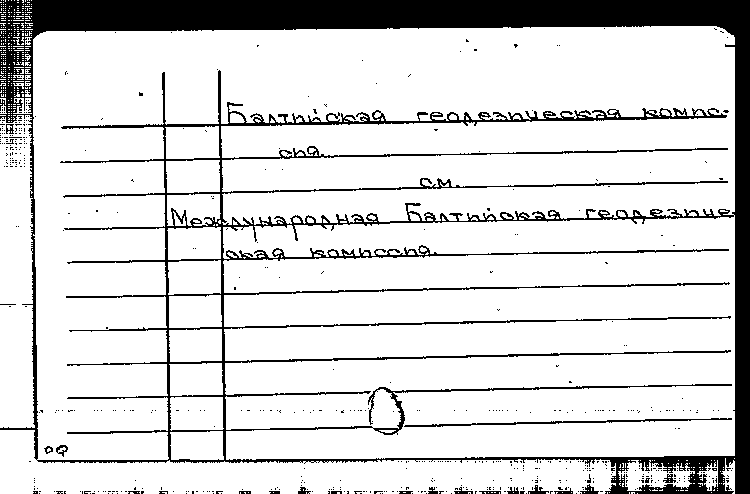 Балтийская геодезическая комис-
сия.
см.
Международная Балтийская геодезиче-
ская комиссия.